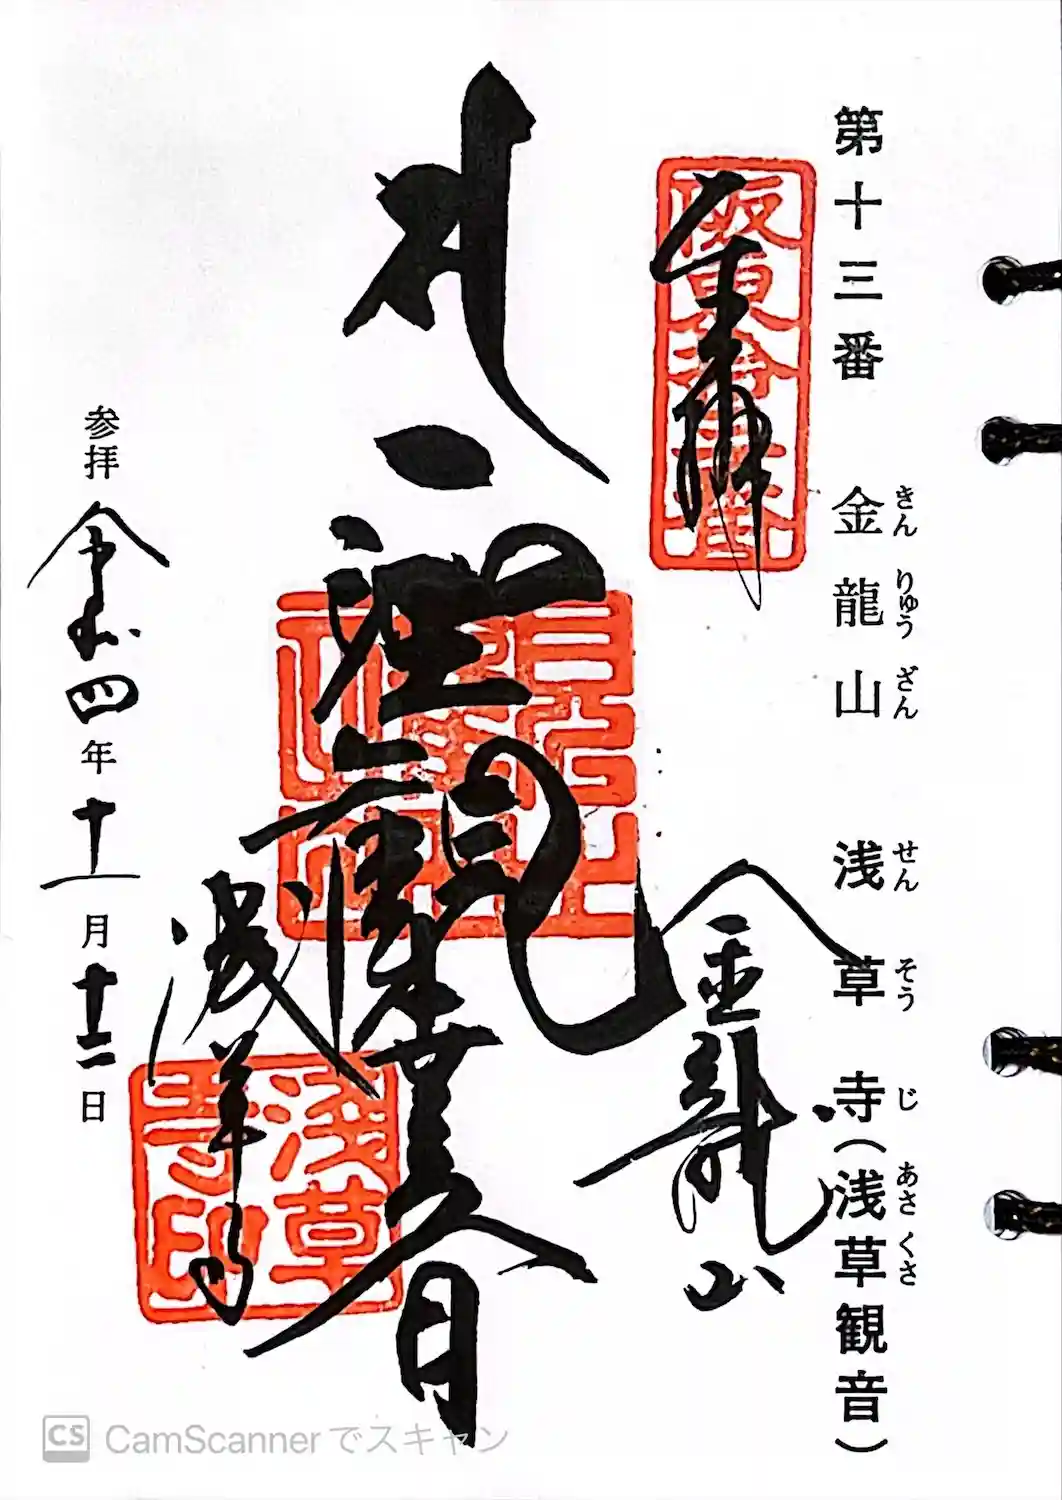 第十三番 金龍山 浅草寺(浅草観音)
きんりゅうざん せんそうじ あさくさ
奉拝
阪東拾三番
金龍山
聖観世音
浅草寺
浅草寺印
参拝 令和四年十一月十二日
CS CamScannerでスキャン